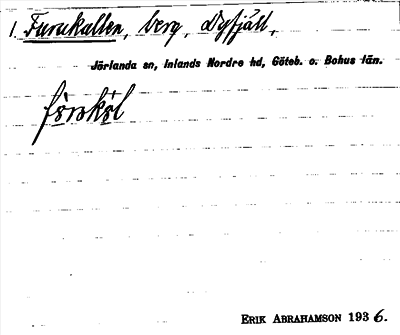 1. Furukallen, berg, Dyfjäll,
Jörlanda sn, Inlands Nordre hd, Göteb. o. Bohus län.
ERIK ABRAHAMSON 1936.